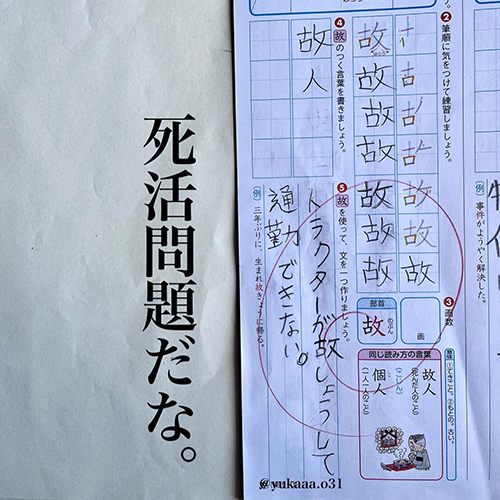 ❷筆順に気をつけて練習しましょう。
故
はらう
故故故故故故
故故故
❸画数
画
部首
故
のぶん
意味
①できごと。②もとの。古い。
同じ読み方の言葉
故人
(死んだ人のこと)
(こじん)
個人
(一人一人のこと)
❹故のつく言葉を書きましょう。
故人
❺故を使って、文を一つ作りましょう。
トラクターが故しょうして
通勤できない。
(例)三年ぶりに、生まれ故きょうに帰る。
(例)事件がようやく解決した。
死活問題だな。
@yukaaa.o31